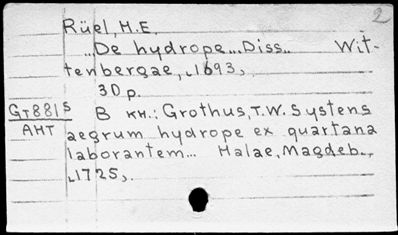 2
Rüel, H.E.
...De hydrope...Diss.. Wit-
tenbergae, ‹1693›.
30 p.
GT881s В кн.: Grothus, T.W. Systens
АНТ aegrum hydrope ex quartana
laborantem... Halae, Magdeb.,
‹1725›.